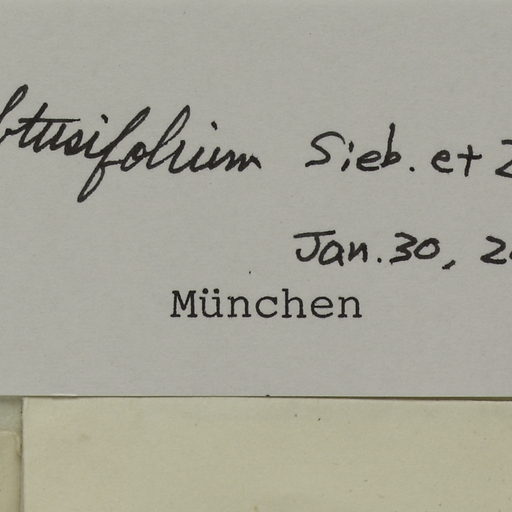 btusifolium Sieb. et Z
Jan. 30, 2
München